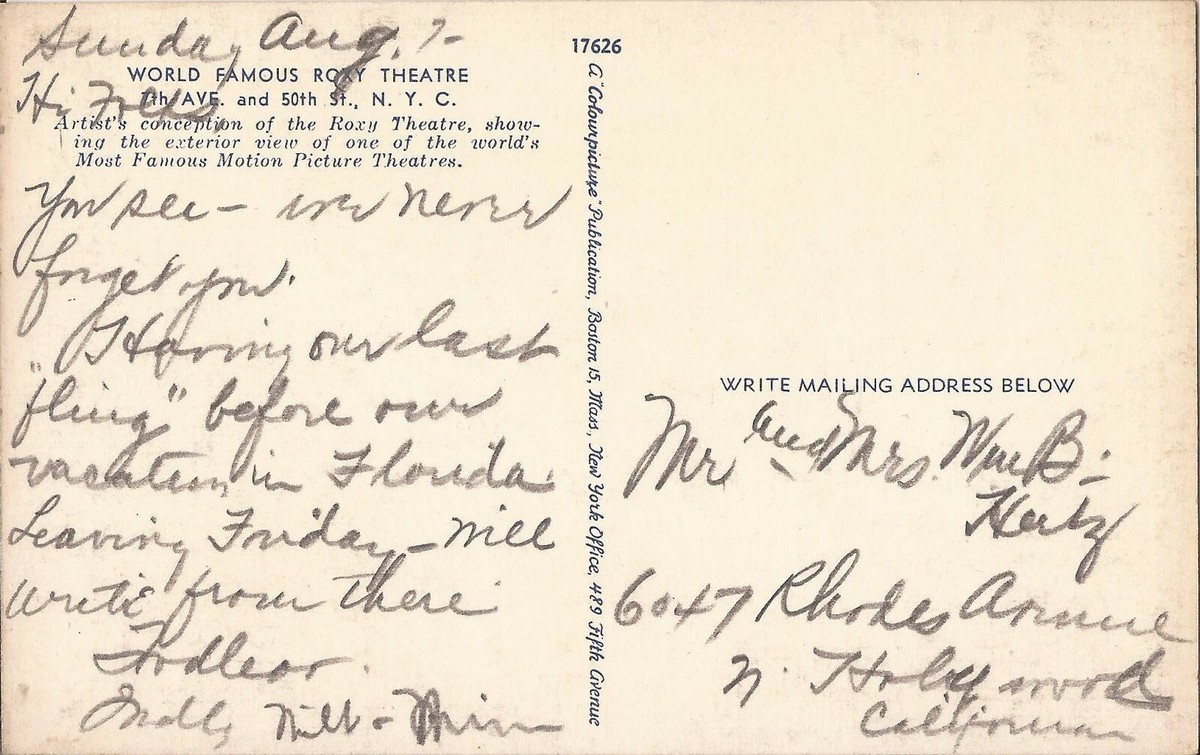 Sunday Aug. 7-
WORLD FAMOUS ROXY THEATRE
Hi Folks,
7th AVE. and 50th St., N. Y. C.
Artist's conception of the Roxy Theatre, show-
ing the exterior view of one of the world's
Most Famous Motion Picture Theatres.
You see - we never
forget you.
Having our last
"fling" before our
vacation in Florida.
Leaving Friday - Will
write from there
Milt &
17626
A "Colourpicture" Publication, Boston 15, Mass., New York Office, 489 Fifth Avenue
WRITE MAILING ADDRESS BELOW
Mr and Mrs. Wm B.
Hertz
6047 Rhodes Avenue
N. Hollywood
California